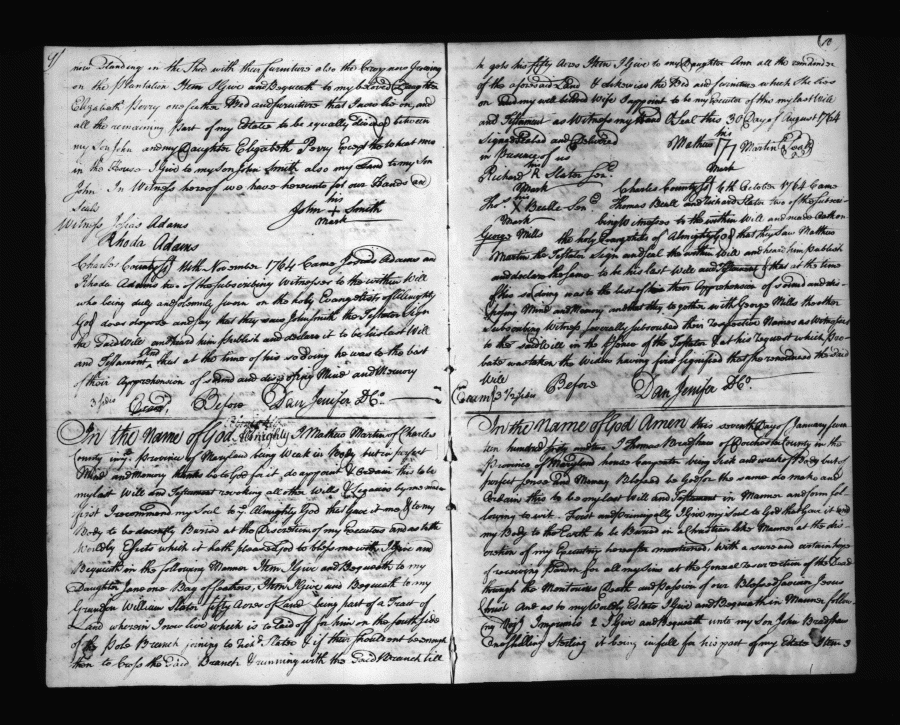 9
now standing in the with their furniture also the Crop now Growing
on the Plantation Item I Give and Bequeath to my beloved Daughter
Elizabeth Perry one feather Bed and furniture that I now lie on, and
all the remaining Part of my Estate to be equally divided between
my Son John and my Daughter Elizabeth Perry Except the Wheat now
in the House I Give to my Son John Smith also my Land to my Son
John In Witness hereof we have hereunto set our Hands and
Seals
his
John + Smith
mark
Witness Josias Adams
Rhoda Adams
Charles County Ss 14th November 1764 Came Josias Adams and
Rhoda Adams two of the subscribing Witnesses to the within Will
who being duly and solemnly sworn on the holy Evangelists of Almighty
God does depose and say that they saw John Smith the Testator Sign
the said Will and heard him publish and declare it to be his last Will
and Testament and that at the time of his so doing he was to the best
of their Apprehension of sound and disposing Mind and Memory
3 sides
Exam'd Before Dan Jenifer D Co
In the Name of God Almighty I Mathew Martin of Charles
County in ye Province of Maryland being Weak in Body but in perfect
Mind and Memory thanks be to God for it, do appoint & ordain this to be
my last Will and Testament revoking all other Wills & Legacies by me under
first I recommend my Soul to ye Almighty God that Gave it me & to my
Body to be decently Buried at the Discretion of my Executors and as to the
Worldly Effects which it hath pleased God to bless me with, I Give and
Bequeath in the following Manner Item I Give and Bequeath to my
Daughter Jane one Bag of feathers, Item I Give and Bequeath to my
Grandson William Slater fifty Acres of Land being part of a Tract of
Land wherein I now live which is to be laid off for him on the South side
of the Pole Branch joining to Rich'd Slater & if there should not be enough
then to Cross the said Branch & running with the said Branch till
10
he gets his fifty Acres Item I Give to my Daughter Ann all the remainder
of the aforesaid Land & likewise the Bed and furniture which She lies
on and my well beloved Wife I appoint to be my Executor of this my last Will
and Testament as Witness my Hand & Seal this 30 Day of August 1764
Signed Sealed and Delivered
in Presence of us
his
Mathew M Martin Seal
Mark
his
Richard R Slater Senr
Mark
his
Thos X Beall Senr
Mark
George Mills
Charles County Ss 4th October 1764 Came
Thomas Beall and Richard Slater two of the Subscri-
bing Witnesses to the within Will and made Oath on
the holy Evangelists of Almighty God that they saw Mathew
Martin the Testator Sign and seal the within Will and heard him publish
and declare the same to be his last Will and Testament & that at the time
of his so doing was to the best of their Apprehension of sound and dis-
posing Mind and Memory and that they together with George Mills the other
Subscribing Witness severally subscribed their respective Names as Witnesses
to the said Will in the Presence of the Testator & at his request which Pro-
bate was taken the Widow having first signified that she renounced the said
Will
Exam'd 3 1/2 sides Before Dan Jenifer D Co
In the Name of God Amen this seventh Day of January seven
ten hundred I Thomas Bradshaw of Dorchester County in the
Province of Maryland house Carpenter being Sick and weak of Body but of
perfect sense and Memory Blessed be God for the same do make and
Ordain this to be my last Will and Testament in Manner and form fol-
lowing to wit. First and Principally I Give my Soul to God that Gave it and
my Body to the Earth to be Buried in a Christian like Manner at the dis-
cretion of my Executrix hereafter mentioned, with a sure and certain hope
of receiving Pardon for all my Sins at the General resurrection of the Dead
through the Meritorious Death and Passion of our Blessed Saviour Jesus
Christ And as to my Worldly Estate I Give and Bequeath in Manner follow-
ing Imprimis I Give and Bequeath unto my Son John Bradshaw
One Shilling Sterling it being in full for his part of my Estate Item I